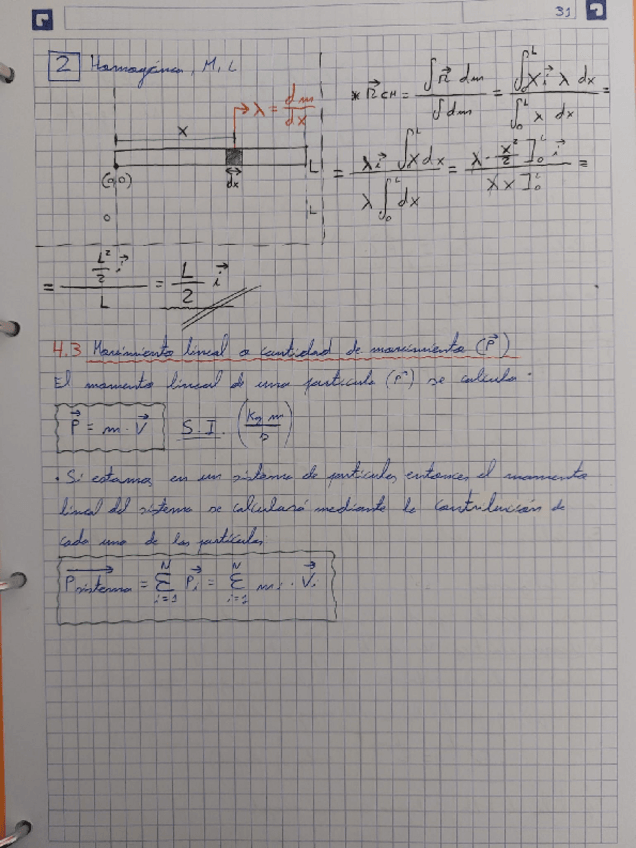 31
2 Homogénea, M, L
λ = dm/dx
x
(0,0)
dx
L
0
L
* r⃗ CM = ∫ r⃗ dm / ∫ dm = ∫₀ᴸ x i⃗ λ dx / ∫₀ᴸ λ dx =
= λ i⃗ ∫₀ᴸ x dx / λ ∫₀ᴸ dx = λ · x²/2 ]₀ᴸ i⃗ / λ x ]₀ᴸ =
= L²/2 i⃗ / L = L/2 i⃗
4.3 Movimiento lineal o cantidad de movimiento (P⃗)
El momento lineal de una partícula (P⃗) se calcula:
P⃗ = m · V⃗ S.I. (kg m / s)
· Si estamos en un sistema de partículas entonces el momento
lineal del sistema se calculará mediante la contribución de
cada una de las partículas:
P⃗ sistema = Σ i=1 N P⃗i = Σ i=1 N mi · V⃗i